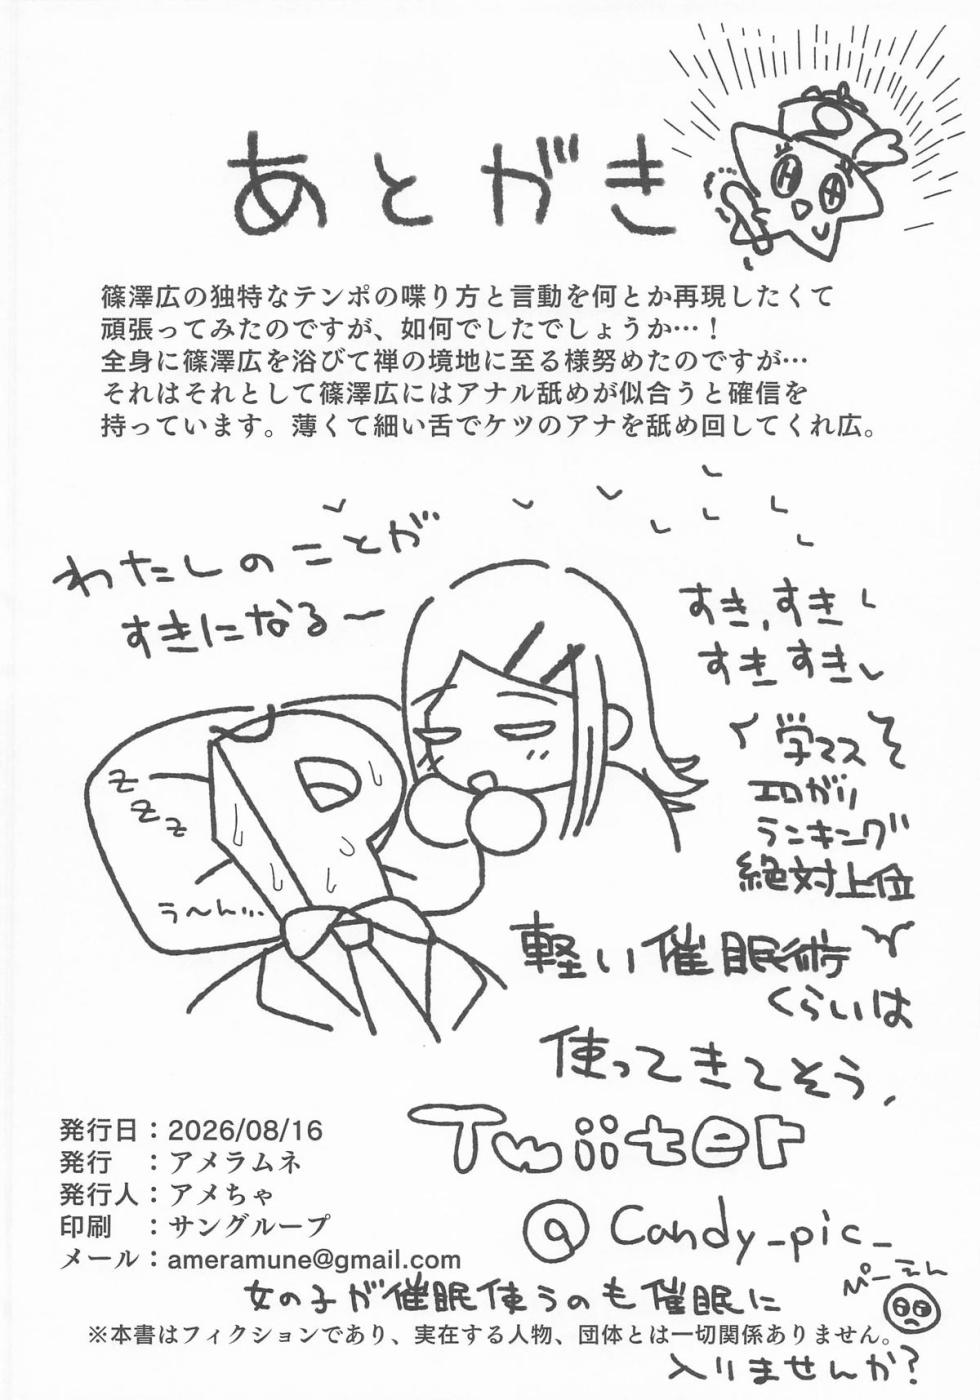 あとがき
篠澤広の独特なテンポの喋り方と言動を何とか再現したくて
頑張ってみたのですが、如何でしたでしょうか…！
全身に篠澤広を浴びて禅の境地に至る様努めたのですが…
それはそれとして篠澤広にはアナル舐めが似合うと確信を
持っています。薄くて細い舌でケツのアナを舐め回してくれ広。
わたしのことが
すきになる〜
すき、すき
すきすき
学マス
エロがり
ランキング
絶対上位
zzz
う〜ん…
軽い催眠術
くらいは
使ってきてそう、
発行日：2026/08/16
発行　：アメラムネ
発行人：アメちゃ
印刷　：サングループ
メール：ameramune@gmail.com
Twiiter
@Candy_pic_
ぴーえん
女の子が催眠使うのも催眠に
※本書はフィクションであり、実在する人物、団体とは一切関係ありません。
入りませんか？